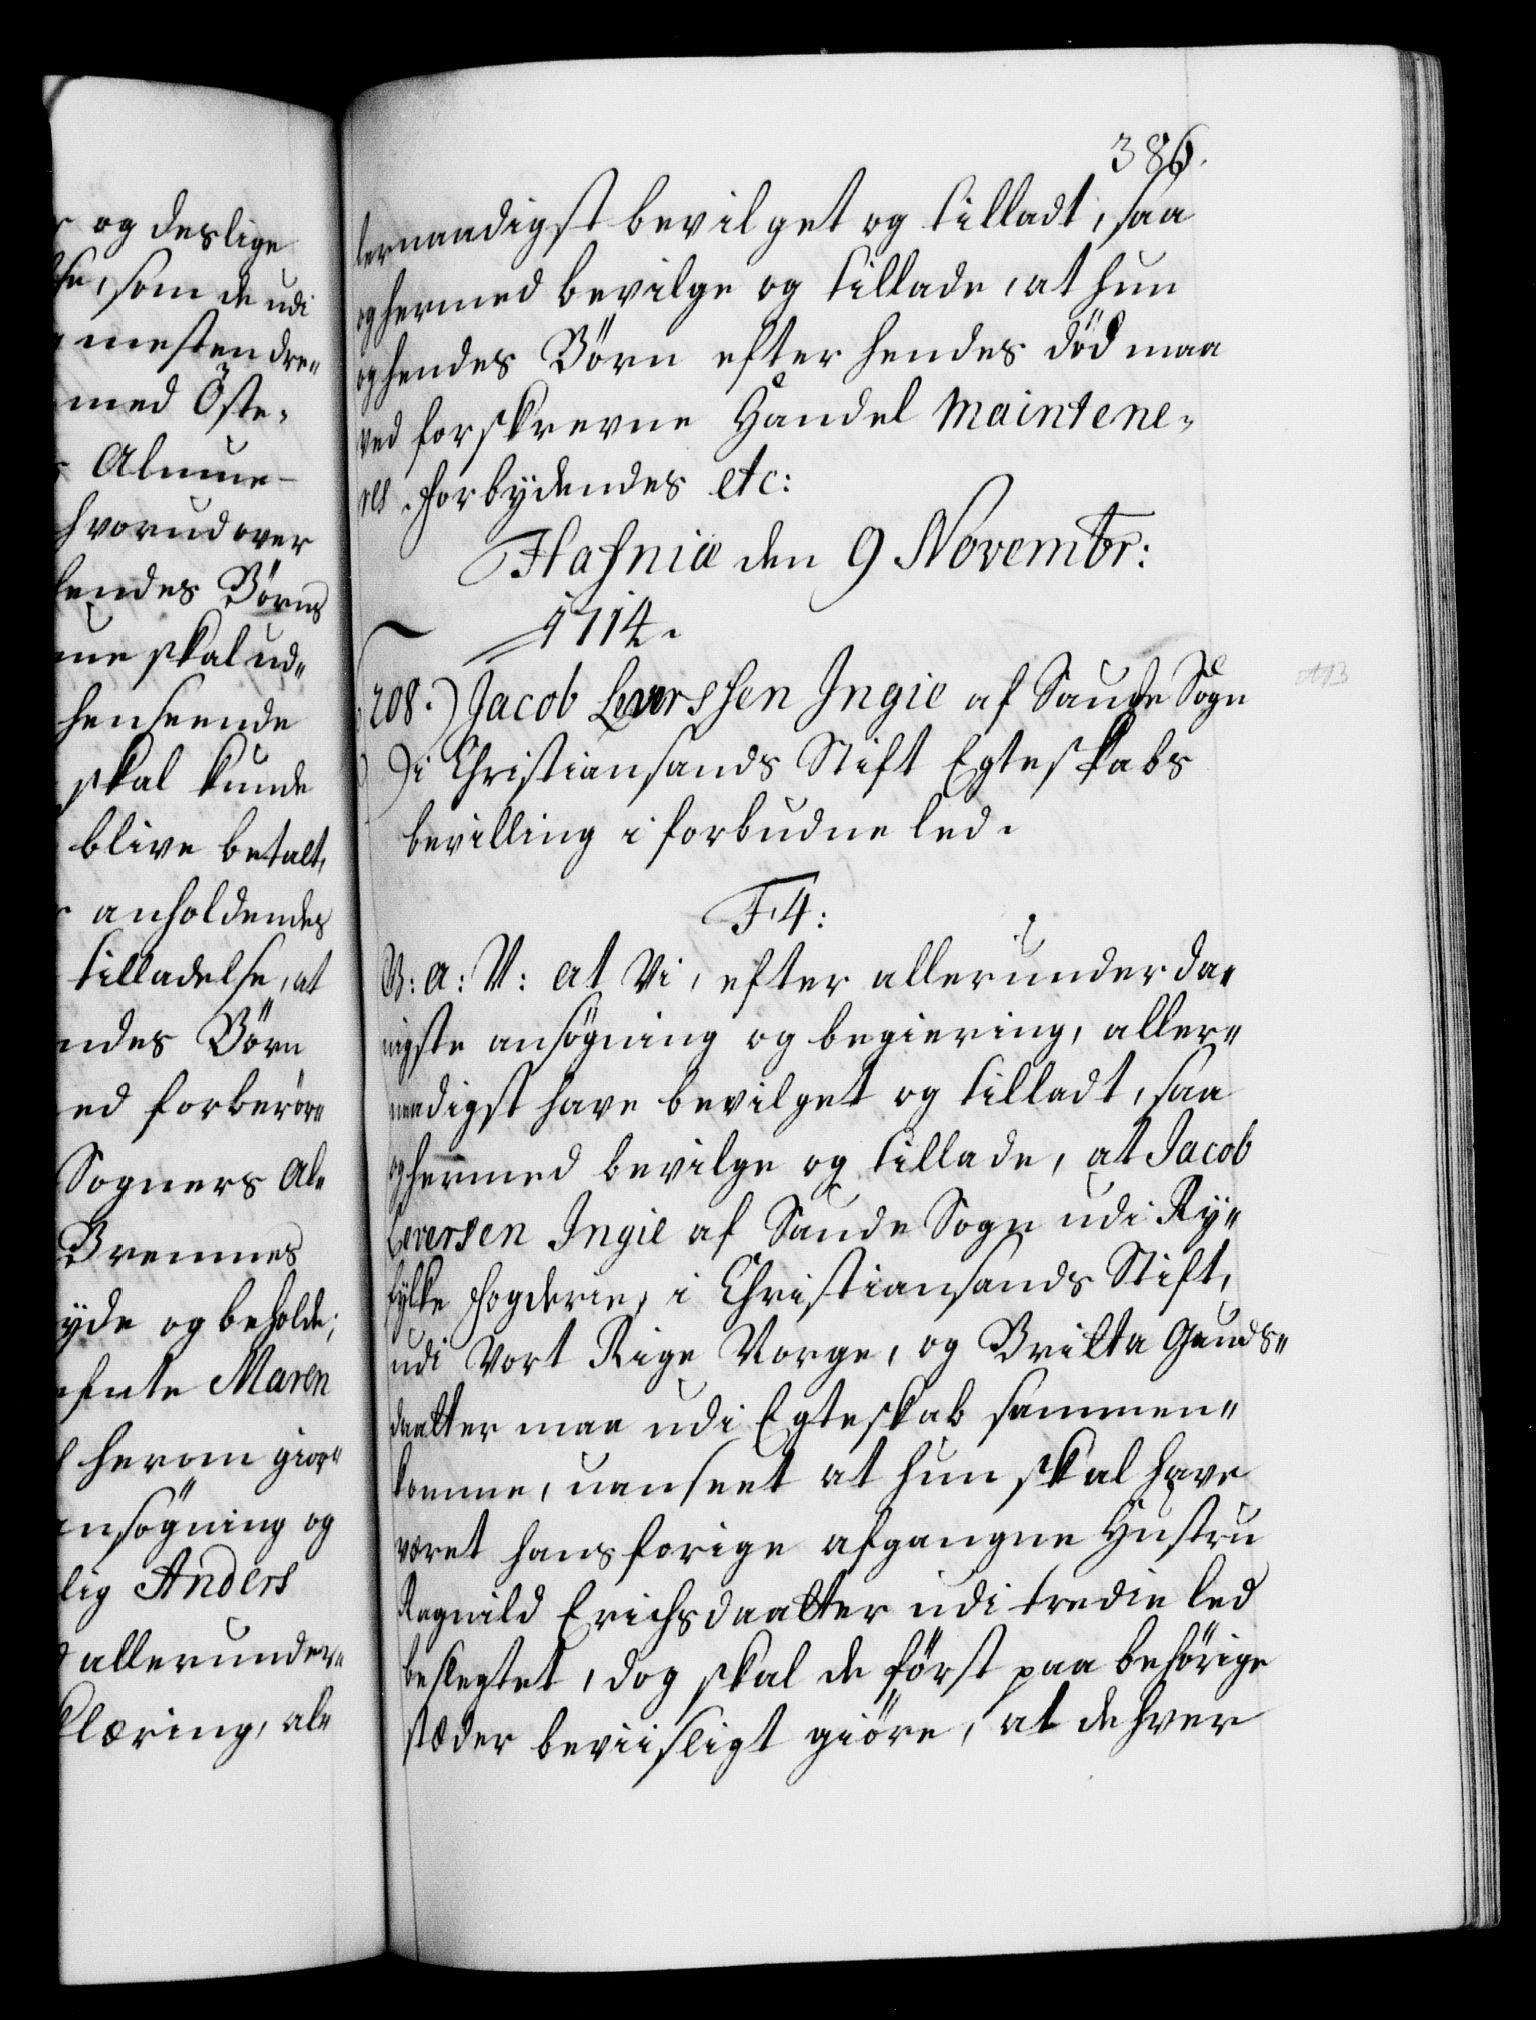 og deslige
som de udi
mesten dre„
med Öste„
Almue
hvorudover
hendes Börns
skal ud„
henseende
skal kunde
blive betalt,
anholdendes
tilladelse, at
Börn
forberör„
Sogners Al„
Bremnes
og beholde;
Maren
herom gior„
ansögning og
Anders
allerunder„
al„
386.
lernaadigst bevilget og tilladt, saa
og hermed bevilge og tillade, at hun
og hendes Börn efter hendes död maa
ved forskrevne Handel Maintene„
res. Forbydendes etc:
Hafniæ den 9 Novembr:
1714.
208.) Jacob Leverssen Ingie af Saude Sogn
i Christiansands Stift Egteskabs
bevilling i forbudne led.
F4:
G: A: V: at Vi, efter allerunderda„
nigste ansögning og begiering, aller„
naadigst have bevilget og tilladt, saa
og hermed bevilge og tillade, at Jacob
Leversen Ingie af Saude Sogn udi Ry„
fylke Fogderie, i Christiansands Stift,
udi Vort Rige Norge, og Britta Gauds„
daatter maa udi Egteskab sammen„
komme, uanseet at hun skal have
været hans forige afgangne Hustru
Ragnild Erichsdaatter udi tredie led
beslegtet, dog skal de först paa behörige
stæder beviisligt giöre, at de hver